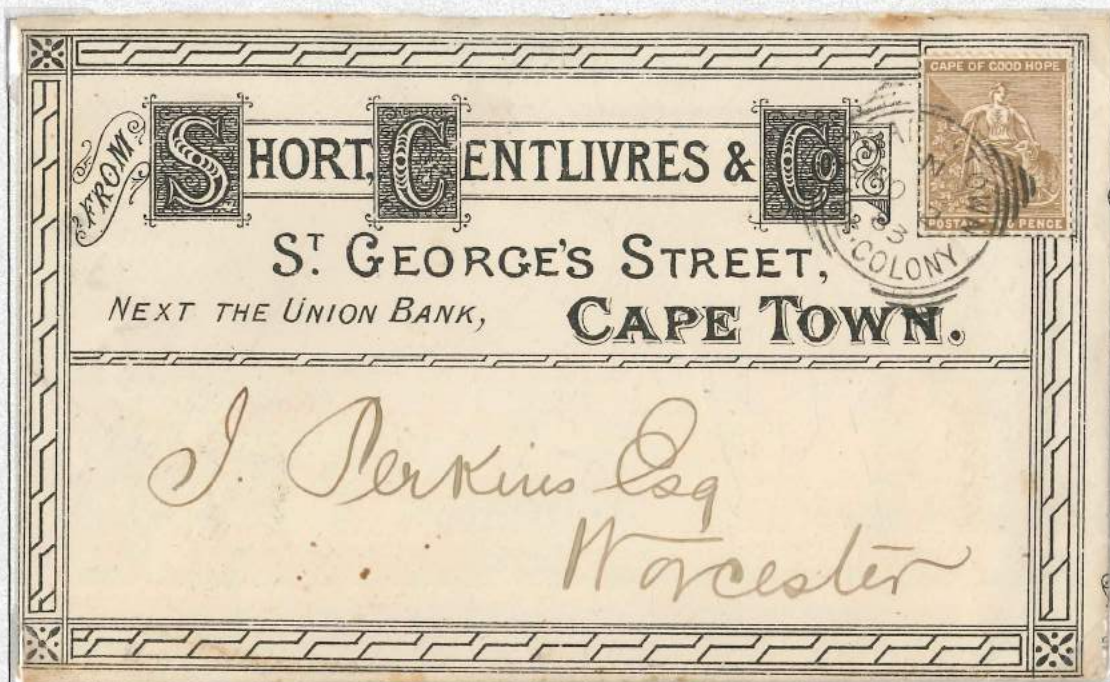 FROM
SHORT, CENTLIVRES & Co
ST. GEORGE'S STREET,
NEXT THE UNION BANK, CAPE TOWN.
CAPE OF GOOD HOPE
PENCE
COLONY
J. Perkins Esq
Worcester